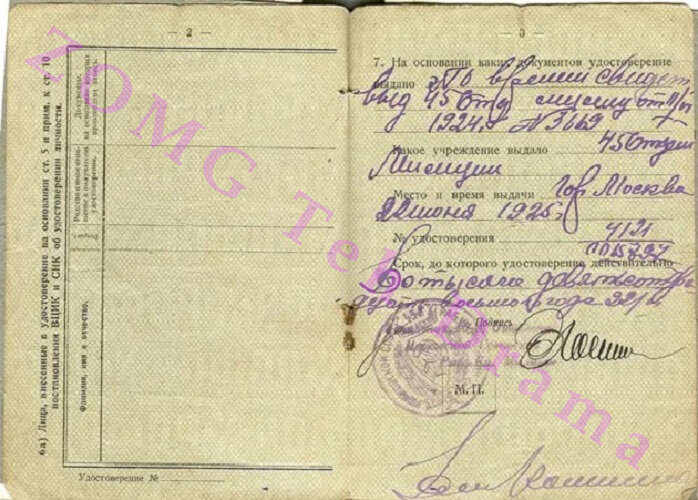 — 2 —
6а) Лица, внесенные в удостоверение на основании ст. 5 и прим. к ст. 10
постановления ВЦИК и СНК об удостоверении личности.
Фамилия, имя и отчество.
Родственное отно-
шение к получателю
удостоверения.
Документы,
на основании которых
произведена запись.
Удостоверение №
— 3 —
7. На основании каких документов удостоверение
выдано По времен свидет
выд 45 Отд
1924г. N 3669
Какое учреждение выдало 45 Отдел
Милиции
Место и время выдачи Гор. Москва
22 июня 1925 г
№ удостоверения 4121
Срок, до которого удостоверение действительно
до тысяча девятьсот
восьмого года 22/VI
Подпись
М. П.
ZOMG TeH Drama